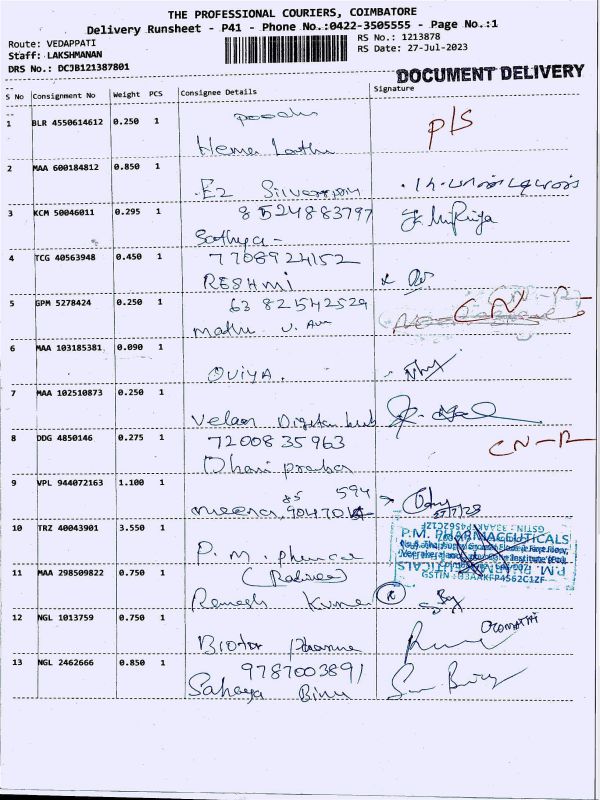 THE PROFESSIONAL COURIERS, COIMBATORE
Delivery Runsheet - P41 - Phone No.:0422-3505555 - Page No.:1
Route: VEDAPPATI
Staff: LAKSHMANAN
DRS No.: DCJB121387801
RS No.: 1213878
RS Date: 27-Jul-2023
DOCUMENT DELIVERY
S No Consignment No Weight PCS Consignee Details Signature
1 BLR 4550614612 0.250 1 P/S
Hema Latha
2 MAA 600184812 0.850 1
Ez
3 KCM 50046011 0.295 1 8524883797
Sathya -
4 TCG 40563948 0.450 1 7708924152
RESHMI
5 GPM 5278424 0.250 1 63 82542529 CN-R
Mathu
6 MAA 103185381 0.090 1
OVIYA.
7 MAA 102510873 0.250 1
Velan Digital hub
8 DDG 4850146 0.275 1 7200835963 CN-R
Dhani
9 VPL 944072163 1.100 1
meena
10 TRZ 40043901 3.550 1
P. M. Pharma
P.M. PHARMACEUTICALS
11 MAA 298509822 0.750 1
GSTIN : 33AAKFP4562C1ZF
Ramesh Kumar
12 NGL 1013759 0.750 1
Biotor Pharma
13 NGL 2462666 0.850 1 9787003891
Sahaya Binu